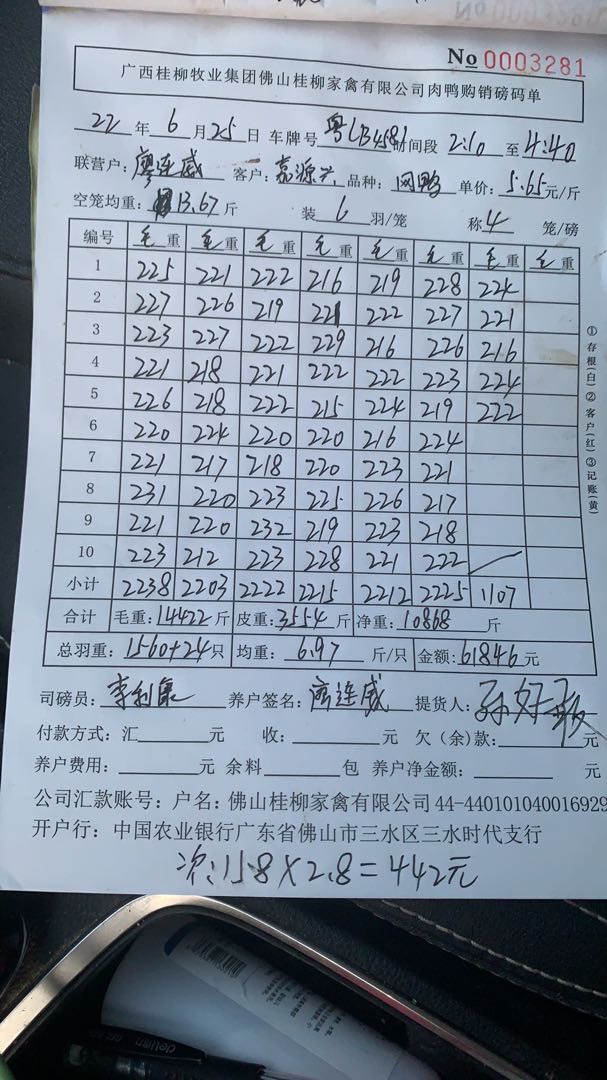 No 0003281
广西桂柳牧业集团佛山桂柳家禽有限公司肉鸭购销磅码单
22 年 6 月 25 日 车牌号 粤LB4581 时间段 2:10 至 4:40
联营户: 廖连威 客户: 嘉源兴 品种: 网鸭 单价: 5.65 元/斤
空笼均重: 13.67 斤 装 6 羽/笼 称 4 笼/磅
编号 毛重 毛重 毛重 毛重 毛重 毛重 毛重 毛重
1 225 221 222 216 219 228 224
2 227 226 219 221 222 227 221
3 223 227 222 229 216 226 216
4 221 218 221 222 222 223 224
5 226 218 222 215 224 219 222
6 220 224 220 220 216 224
7 221 217 218 220 223 221
8 231 220 223 225 226 217
9 221 220 232 219 223 218
10 223 212 223 228 221 222
小计 2238 2203 2222 2215 2212 2225 1107
合计 毛重: 14422 斤 皮重: 3554 斤 净重: 10868 斤
总羽重: 1560+24 只 均重: 6.97 斤/只 金额: 61846 元
司磅员: 李利康 养户签名: 廖连威 提货人:
付款方式: 汇 元 收: 元 欠(余)款: 元
养户费用: 元 余料 包 养户净金额: 元
公司汇款账号: 户名: 佛山桂柳家禽有限公司 44-440101040016929
开户行: 中国农业银行广东省佛山市三水区三水时代支行
次:158×2.8=442元
①存根(白)②客户(红)③记账(黄)
deli